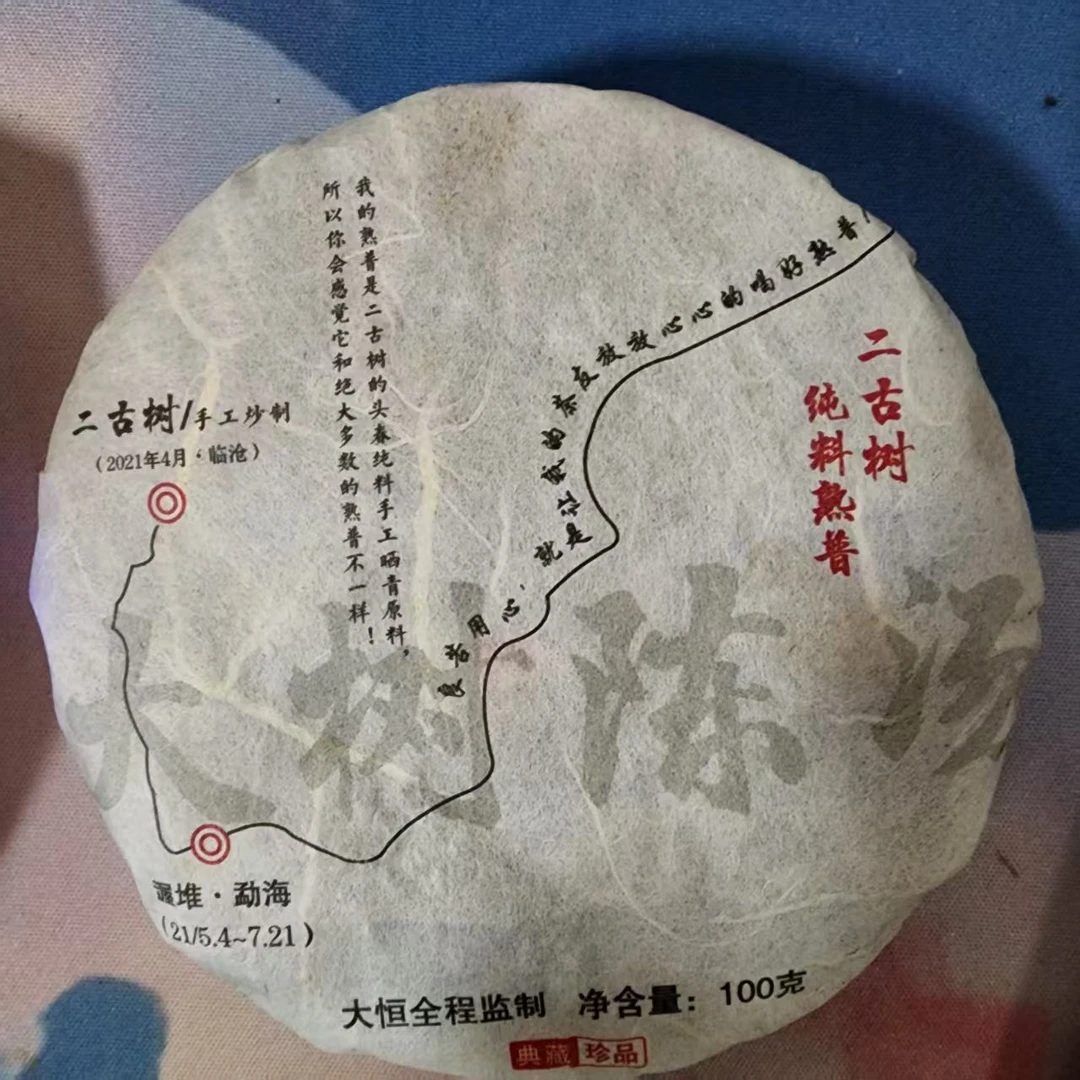 我的熟普是二古树的头春纯料手工晒青原料。
所以你会感觉它和绝大多数的熟普不一样！
二古树/手工炒制
（2021年4月·临沧）
良苦用心，就是让我的茶友放放心心的喝好熟普
二古树
纯料熟普
大树陈
渥堆·勐海
（21/5.4~7.21）
大恒全程监制 净含量：100克
典藏珍品